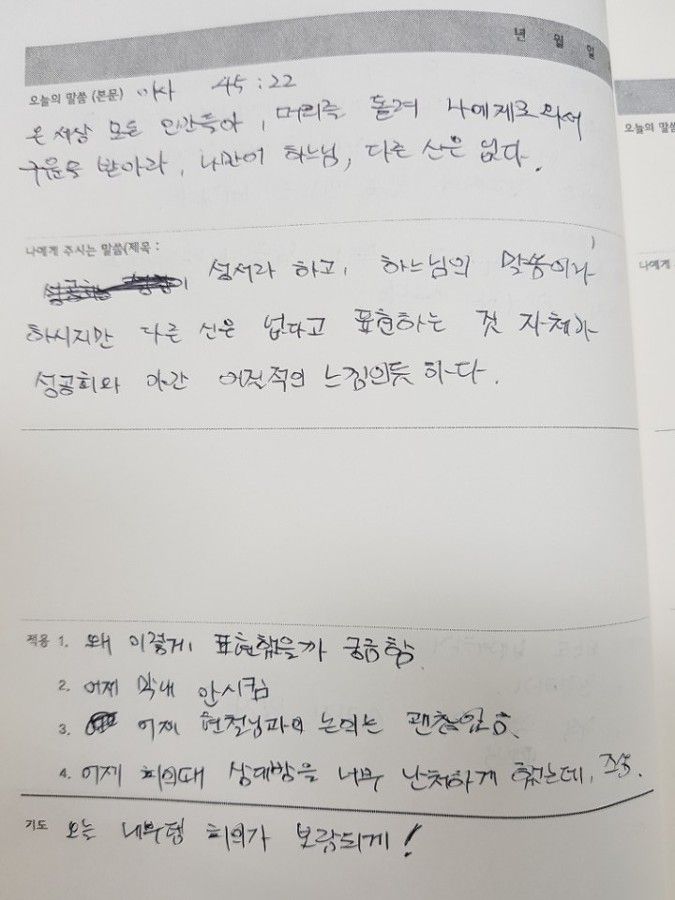 년 월 일
오늘의 말씀 (본문) 이사 45:22
온 세상 모든 인간들아, 머리를 돌려 나에게로 와서
구원을 받아라, 나만이 하느님, 다른 신은 없다.
나에게 주시는 말씀(제목: )
성서라 하고, 하느님의 말씀이라
하시지만 다른 신은 없다고 표현하는 것 자체가
성공회와 약간 이질적인 느낌인듯 하다.
적용 1. 왜 이렇게 표현했을까 궁금함
2. 어제 막내 안시킴
3. 어제 현철님과의 논의는 괜찮았음.
4. 어제 회의때 상대방을 너무 난처하게 했는데,
기도 오늘 회의가 보람되게!
오늘의 말씀
나에게